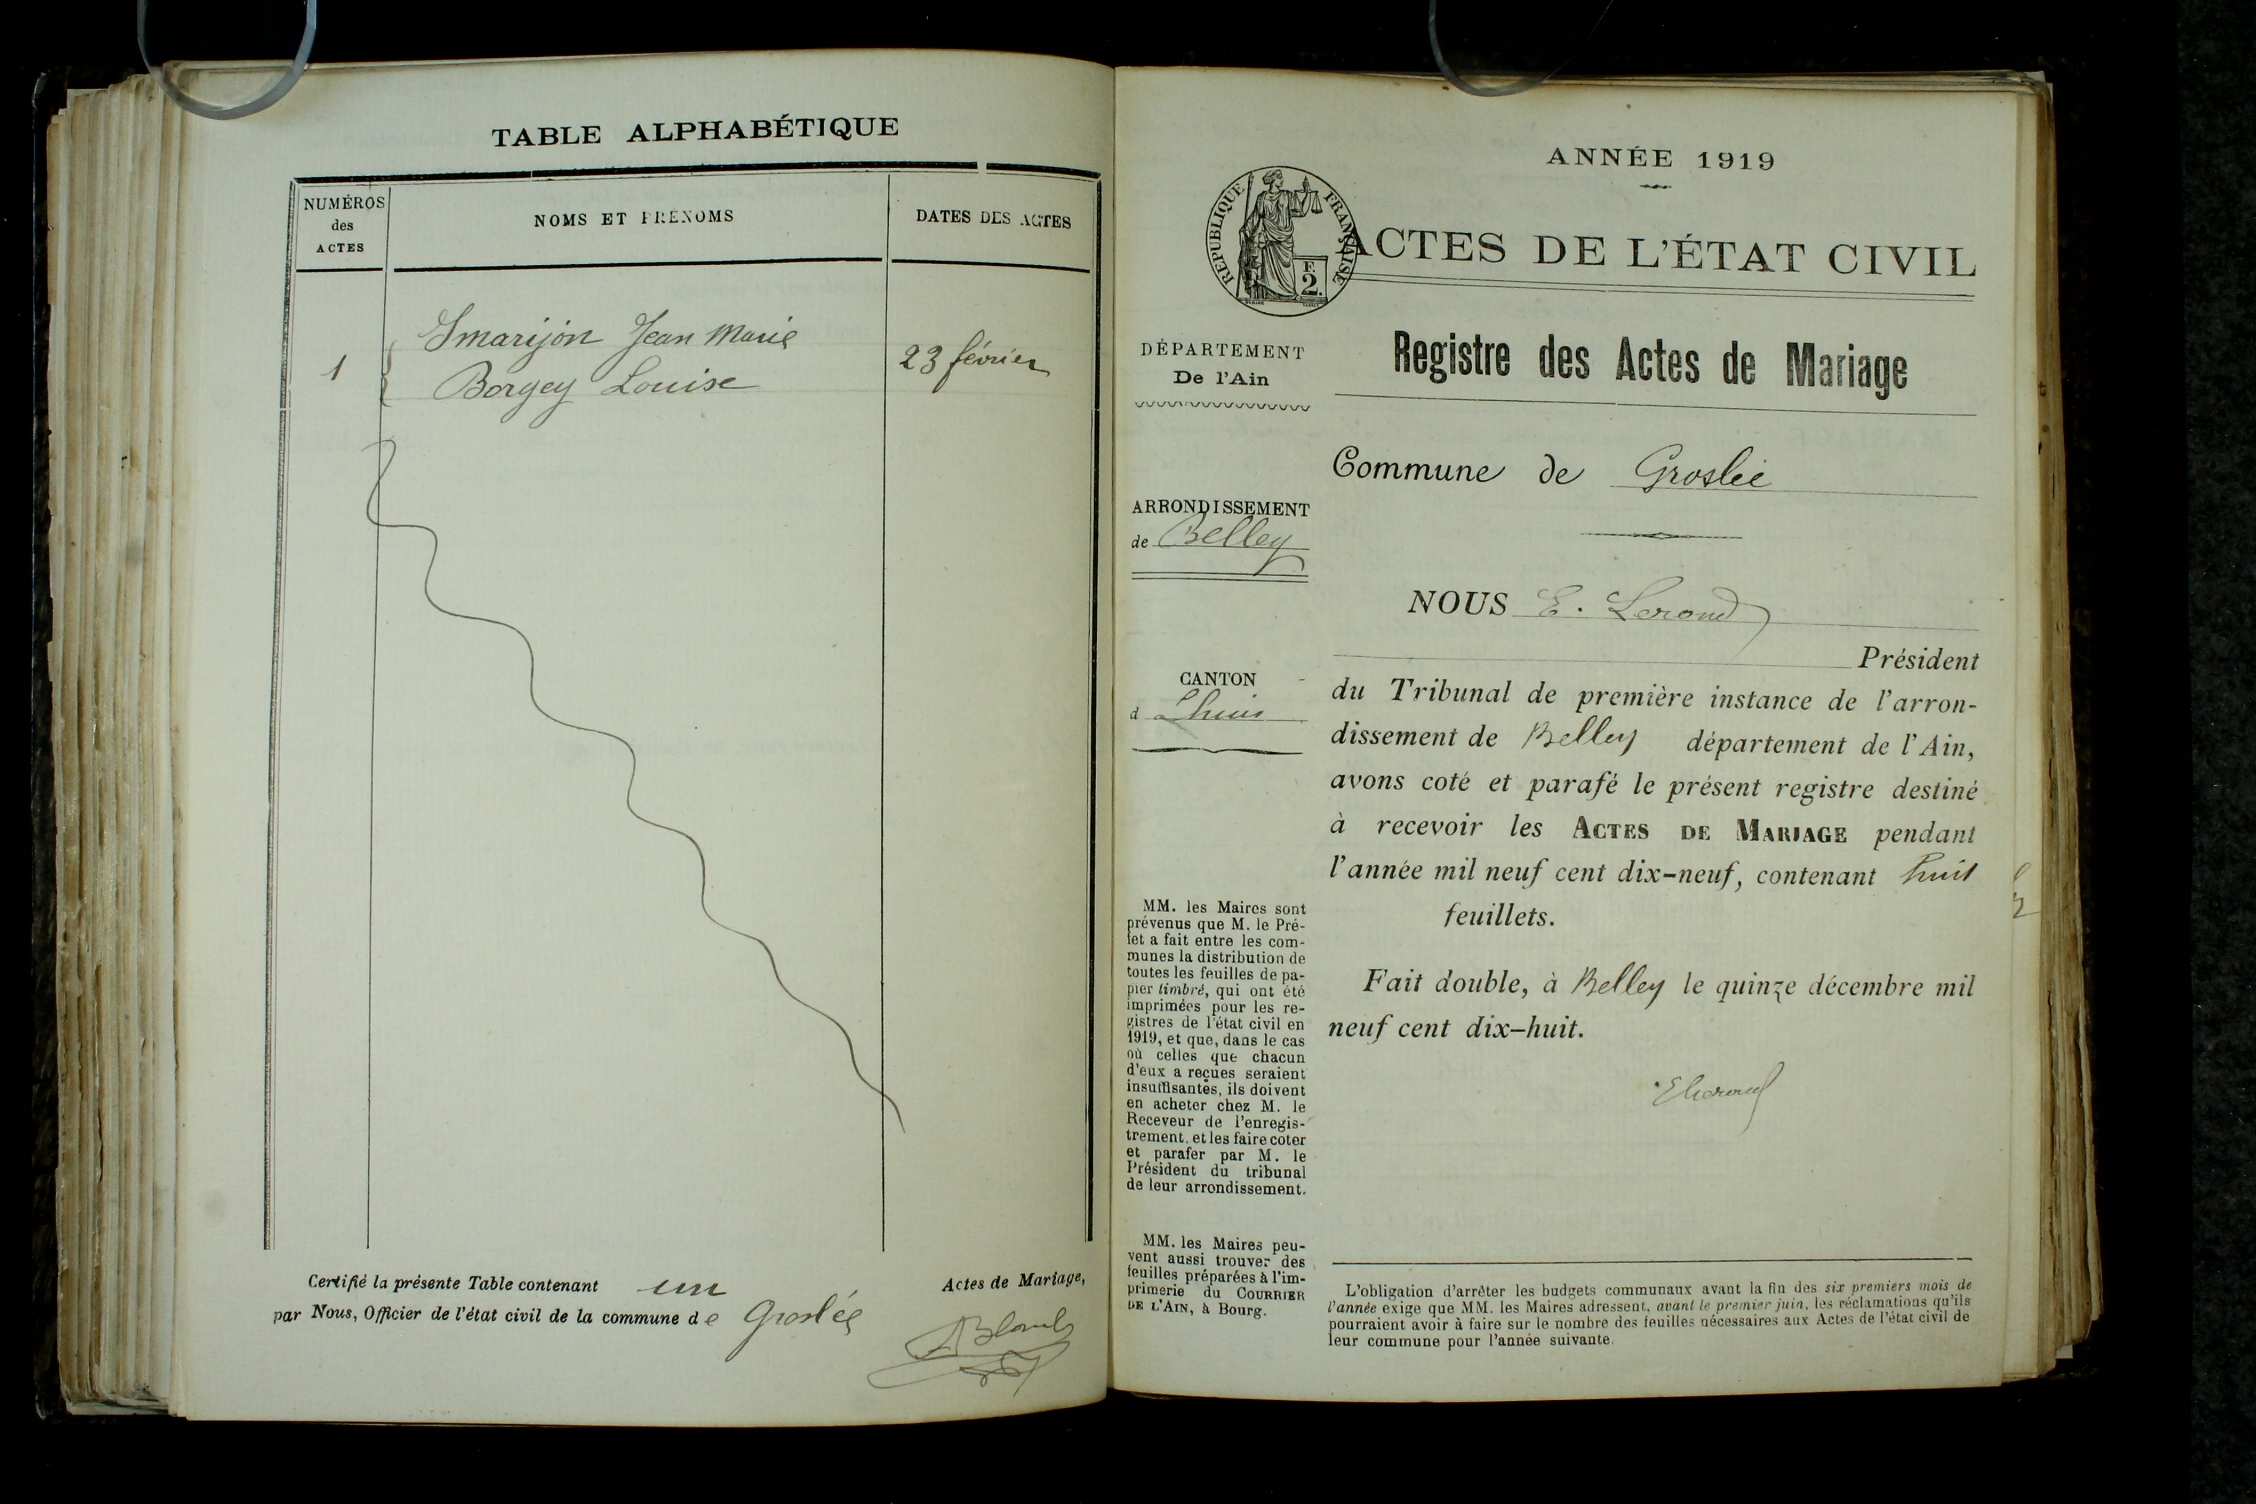 TABLE ALPHABÉTIQUE
NUMÉROS
des
ACTES
NOMS ET PRÉNOMS
DATES DES ACTES
1
Smarijon Jean Marie
Borgey Louise
23 février
Certifié la présente Table contenant un Actes de Mariage,
par Nous, Officier de l'état civil de la commune de Groslée
ANNÉE 1919
RÉPUBLIQUE FRANÇAISE
F.
2.
ACTES DE L'ÉTAT CIVIL
DÉPARTEMENT
De l'Ain
Registre des Actes de Mariage
Commune de Groslée
ARRONDISSEMENT
de Belley
NOUS E. Lerond
Président
CANTON
d Lhuis
du Tribunal de première instance de l'arron-
dissement de Belley département de l'Ain,
avons coté et parafé le présent registre destiné
à recevoir les ACTES DE MARIAGE pendant
l'année mil neuf cent dix-neuf, contenant huit
feuillets.
Fait double, à Belley le quinze décembre mil
neuf cent dix-huit.
MM. les Maires sont
prévenus que M. le Pré-
fet a fait entre les com-
munes la distribution de
toutes les feuilles de pa-
pier timbré, qui ont été
imprimées pour les re-
gistres de l'état civil en
1919, et que, dans le cas
où celles que chacun
d'eux a reçues seraient
insuffisantes, ils doivent
en acheter chez M. le
Receveur de l'enregis-
trement, et les faire coter
et parafer par M. le
Président du tribunal
de leur arrondissement.
MM. les Maires peu-
vent aussi trouver des
feuilles préparées à l'im-
primerie du COURRIER
DE L'AIN, à Bourg.
L'obligation d'arrêter les budgets communaux avant la fin des six premiers mois de
l'année exige que MM. les Maires adressent, avant le premier juin, les réclamations qu'ils
pourraient avoir à faire sur le nombre des feuilles nécessaires aux Actes de l'état civil de
leur commune pour l'année suivante.